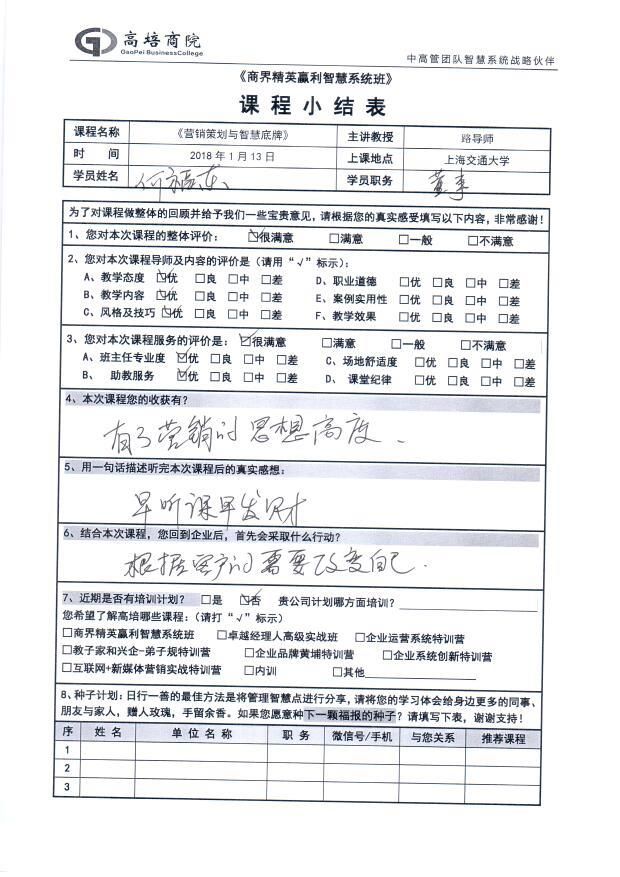 高培商院
GaoPei BusinessCollege
中高管团队智慧系统战略伙伴
《商界精英赢利智慧系统班》
课程小结表
课程名称 《营销策划与智慧底牌》 主讲教授 路导师
时 间 2018年1月13日 上课地点 上海交通大学
学员姓名 何福东 学员职务 董事
为了对课程做整体的回顾并给予我们一些宝贵意见，请根据您的真实感受填写以下内容，非常感谢！
1、您对本次课程的整体评价： ☑很满意 □满意 □一般 □不满意
2、您对本次课程导师及内容的评价是（请用“√”标示）：
A、教学态度 ☑优 □良 □中 □差 D、职业道德 □优 □良 □中 □差
B、教学内容 ☑优 □良 □中 □差 E、案例实用性 □优 □良 □中 □差
C、风格及技巧 ☑优 □良 □中 □差 F、教学效果 □优 □良 □中 □差
3、您对本次课程服务的评价是： ☑很满意 □满意 □一般 □不满意
A、班主任专业度 ☑优 □良 □中 □差 C、场地舒适度 □优 □良 □中 □差
B、 助教服务 ☑优 □良 □中 □差 D、 课堂纪律 □优 □良 □中 □差
4、本次课程您的收获有？
有了营销的思想高度.
5、用一句话描述听完本次课程后的真实感想：
早听课早发财
6、结合本次课程，您回到企业后，首先会采取什么行动？
根据客户的需要改变自己.
7、近期是否有培训计划？ □是 ☑否 贵公司计划哪方面培训？
您希望了解高培哪些课程：（请打“√”标示）
□商界精英赢利智慧系统班 □卓越经理人高级实战班 □企业运营系统特训营
□教子家和兴企-弟子规特训营 □企业品牌黄埔特训营 □企业系统创新特训营
□互联网+新媒体营销实战特训营 □内训 □其他
8、种子计划：日行一善的最佳方法是将管理智慧点进行分享，请将您的学习体会给身边更多的同事、
朋友与家人，赠人玫瑰，手留余香。如果您愿意种下一颗福报的种子？请填写下表，谢谢支持！
序 姓 名 单 位 名 称 职 务 微信号/手机 与您关系 推荐课程
1
2
3